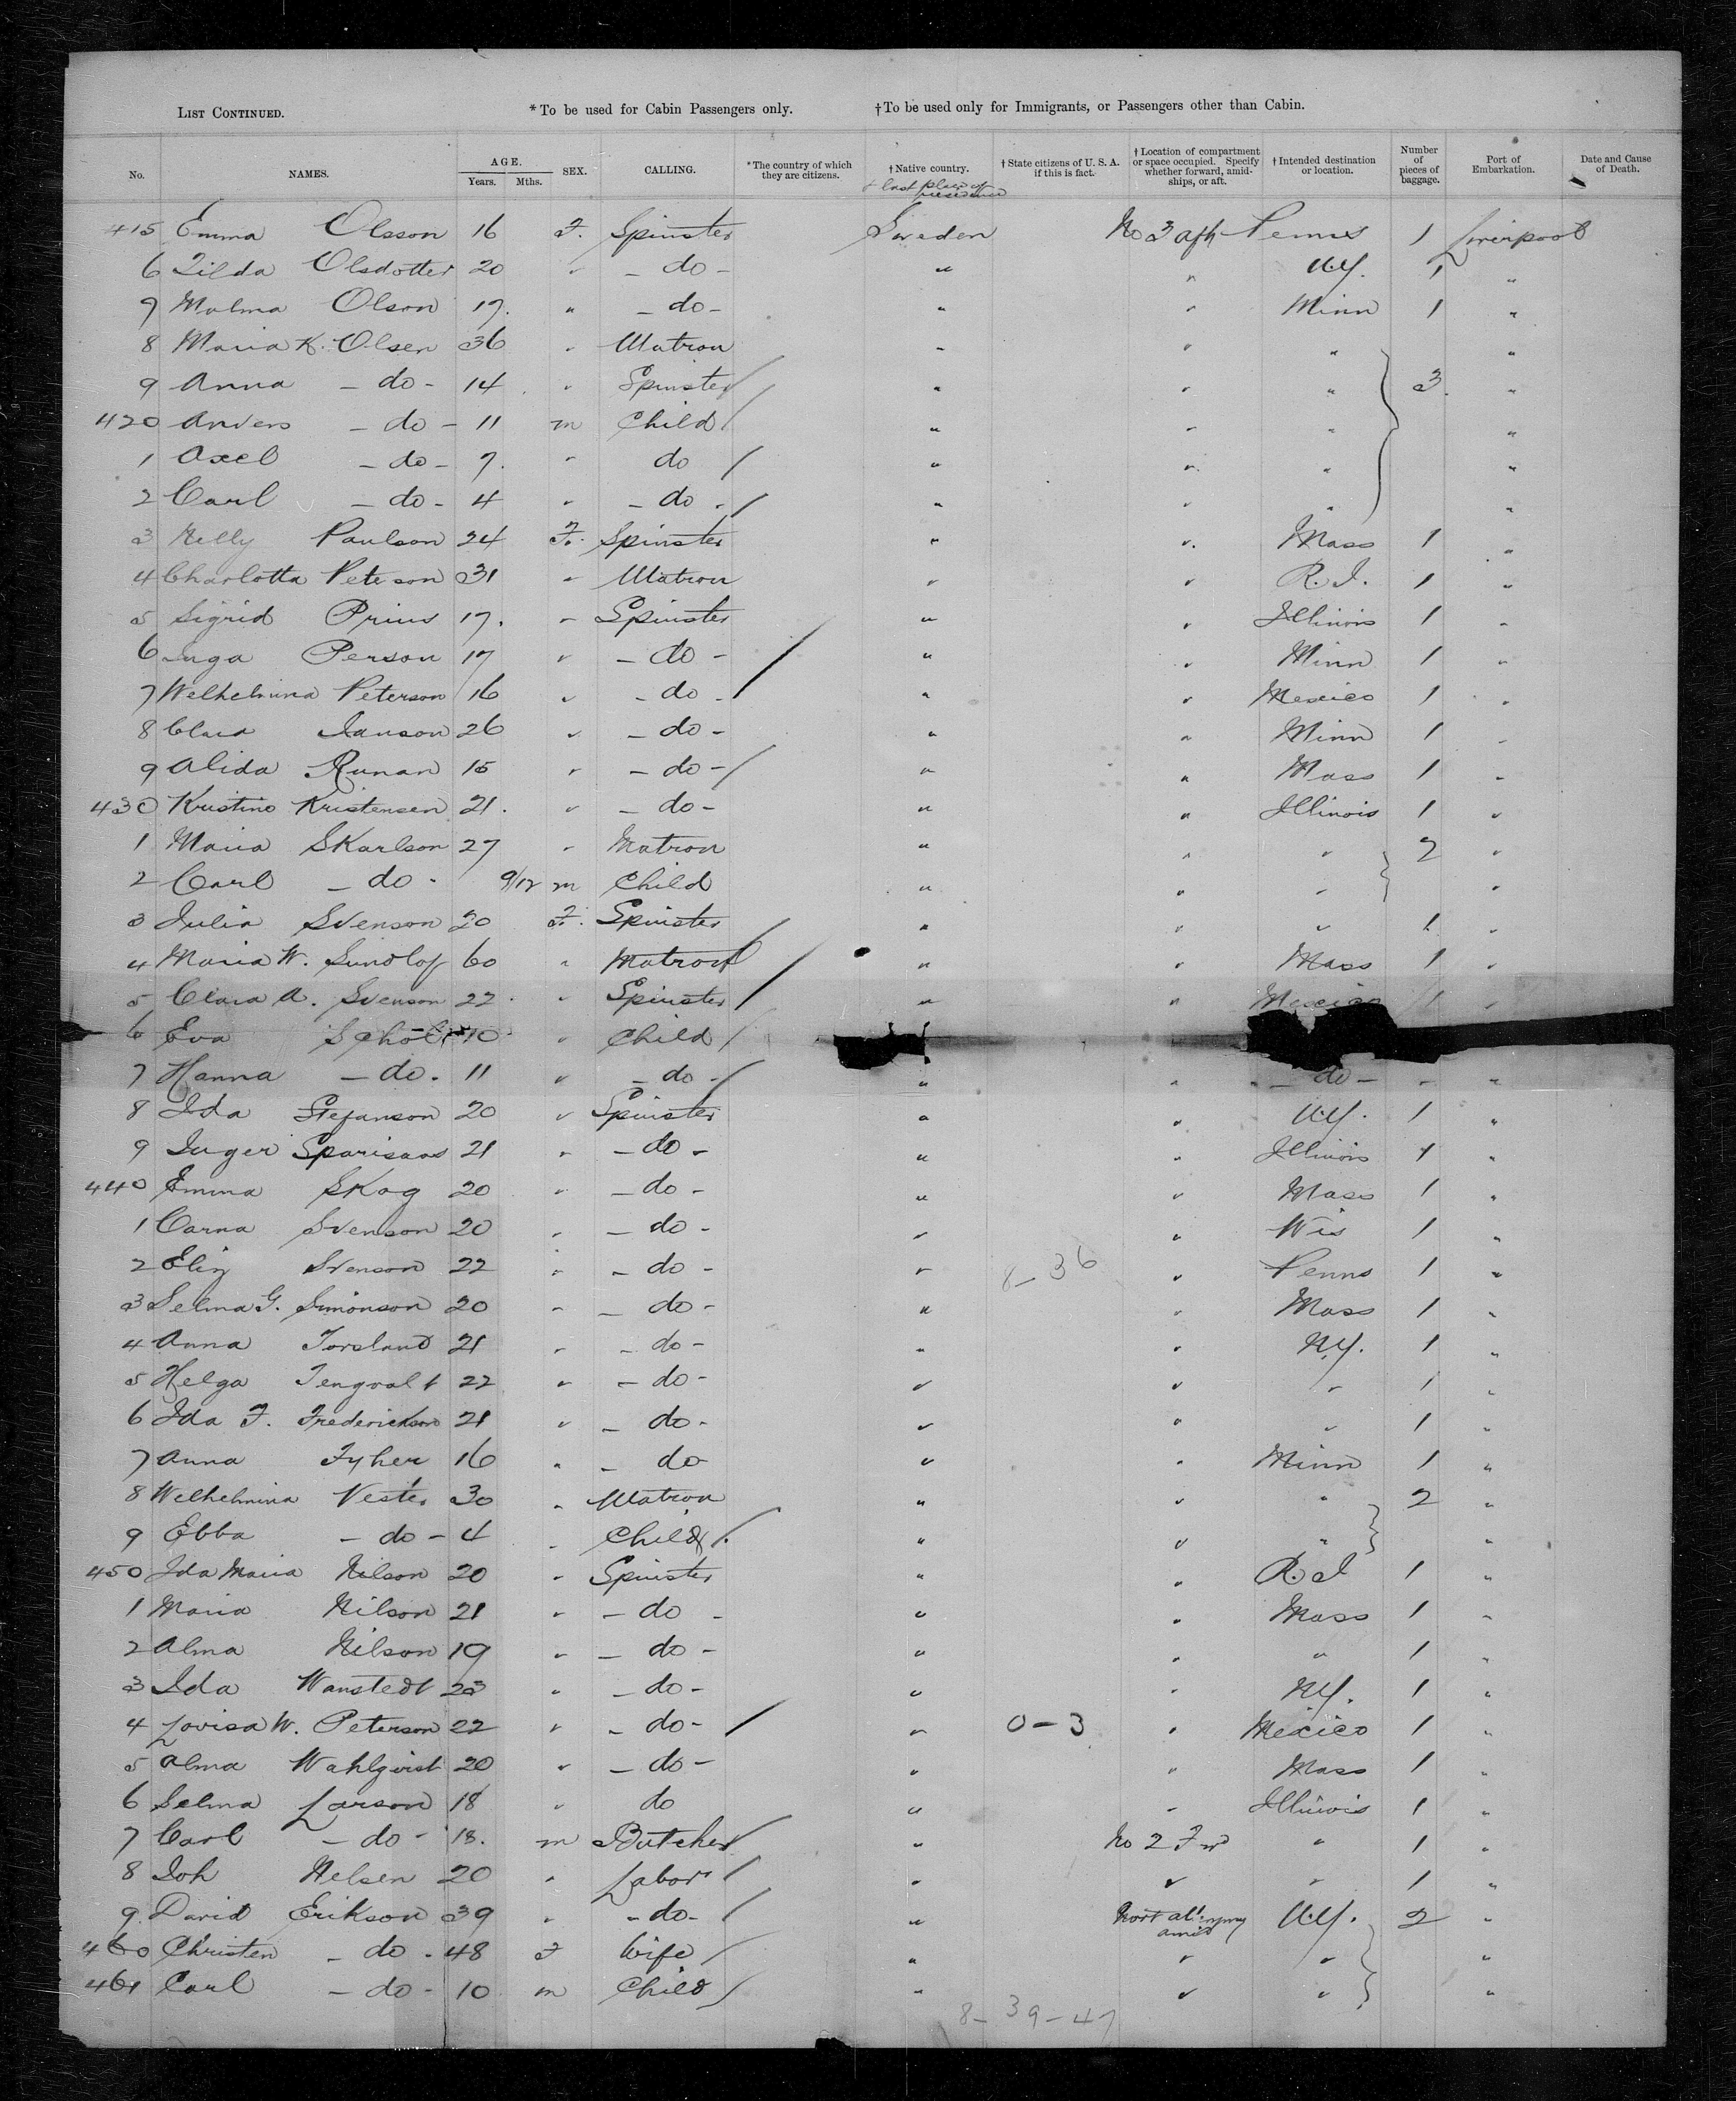 List Continued. *To be used for Cabin Passengers only. †To be used only for Immigrants, or Passengers other than Cabin.
No. NAMES. AGE. Years. Mths. SEX. CALLING. *The country of which they are citizens. †Native country. & last place of residence †State citizens of U. S. A. if this is fact. †Location of compartment or space occupied. Specify whether forward, amid-ships, or aft. †Intended destination or location. Number of pieces of baggage. Port of Embarkation. Date and Cause of Death.
415 Emma Olsson 16 F. Spinster Sweden No 3 aft Penns 1 Liverpool
6 Tilda Olsdotter 20 " - do - " " N.Y. 1 "
7 Malma Olson 17. " - do - " " Minn 1 "
8 Maria K. Olsen 36 " Matron " " " "
9 Anna - do - 14 " Spinster " " " 3. "
420 Anders - do - 11 m Child " " " "
1 Axel - do - 7. " do " " " "
2 Carl - do - 4 " - do - " " " "
3 Nelly Paulson 24 F. Spinster " " Mass 1 "
4 Charlotta Peterson 31 " Matron " " R. I. 1 "
5 Sigrid Prius 17. " Spinster " " Illinois 1 "
6 Inga Person 17 " - do - " " Minn 1 "
7 Welhelmina Peterson 16 " - do - " " Mexico 1 "
8 Clara Janson 26 " - do - " " Minn 1 "
9 Alida Runan 15 " - do - " " Mass 1 "
430 Kristine Kristensen 21. " - do - " " Illinois 1 "
1 Maria Skarlson 27 " Matron " " " 2 "
2 Carl - do - 9/12 m Child " " " "
3 Julia Svenson 20 F. Spinster " " " 1 "
4 Maria W. Sundlof 60 " Matron " " Mass 1 "
5 Clara A. Svenson 22 " Spinster " " Mexico 1 "
6 Eva 10 " Child "
7 Hanna - do - 11 " - do - " " - do - - "
8 Ida Stefanson 20 " Spinster " " N.Y. 1 "
9 Inger 21 " - do - " " Illinois 1 "
440 Emma Skog 20 " - do - " " Mass 1 "
1 Carna Svenson 20 " - do - " " Wis 1 "
2 Elin Svenson 22 " - do - " 8-36 " Penns 1 "
3 Selma G. Simonson 20 " - do - " " Mass 1 "
4 Anna Torsland 21 " - do - " " N.Y. 1 "
5 Helga Tengvalt 22 " - do - " " " 1 "
6 Ida F. Frederickson 21 " - do - " " " 1 "
7 Anna Fyher 16 " - do " " Minn 1 "
8 Welhelmina Vester 30 " Matron " " " 2 "
9 Ebba - do - 4 " Child " " " "
450 Ida Maria Nilson 20 " Spinster " " R. I 1 "
1 Maria Nilson 21 " - do - " " Mass 1 "
2 Alma Nilson 19 " - do - " " " 1 "
3 Ida Wanstedt 23 " - do - " " N.Y. 1 "
4 Lovisa W. Peterson 22 " - do - " 0-3 " Mexico 1 "
5 Alma Wahlqvist 20 " - do - " " Mass 1 "
6 Selma Larson 18 " do " " Illinois 1 "
7 Carl - do - 18. m Butcher " No 2 Fwd " 1 "
8 Joh Nelsen 20 " Labor " " " 1 "
9. David Erikson 39 " - do - " N.Y. 2 "
460 Christen - do - 48 F Wife " " " "
461 Carl - do - 10 m Child " " " "
8-39-47